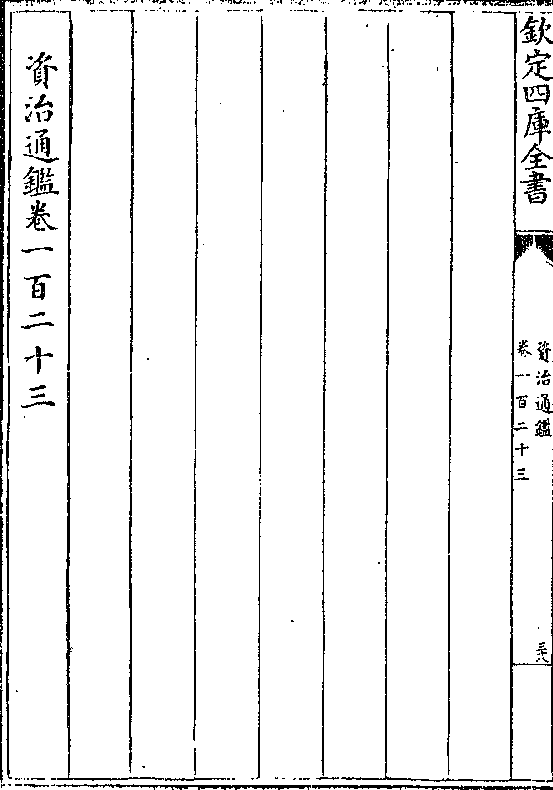 欽定四庫全書
資治通鑑
卷一百二十三
三十八
資治通鑑卷一百二十三